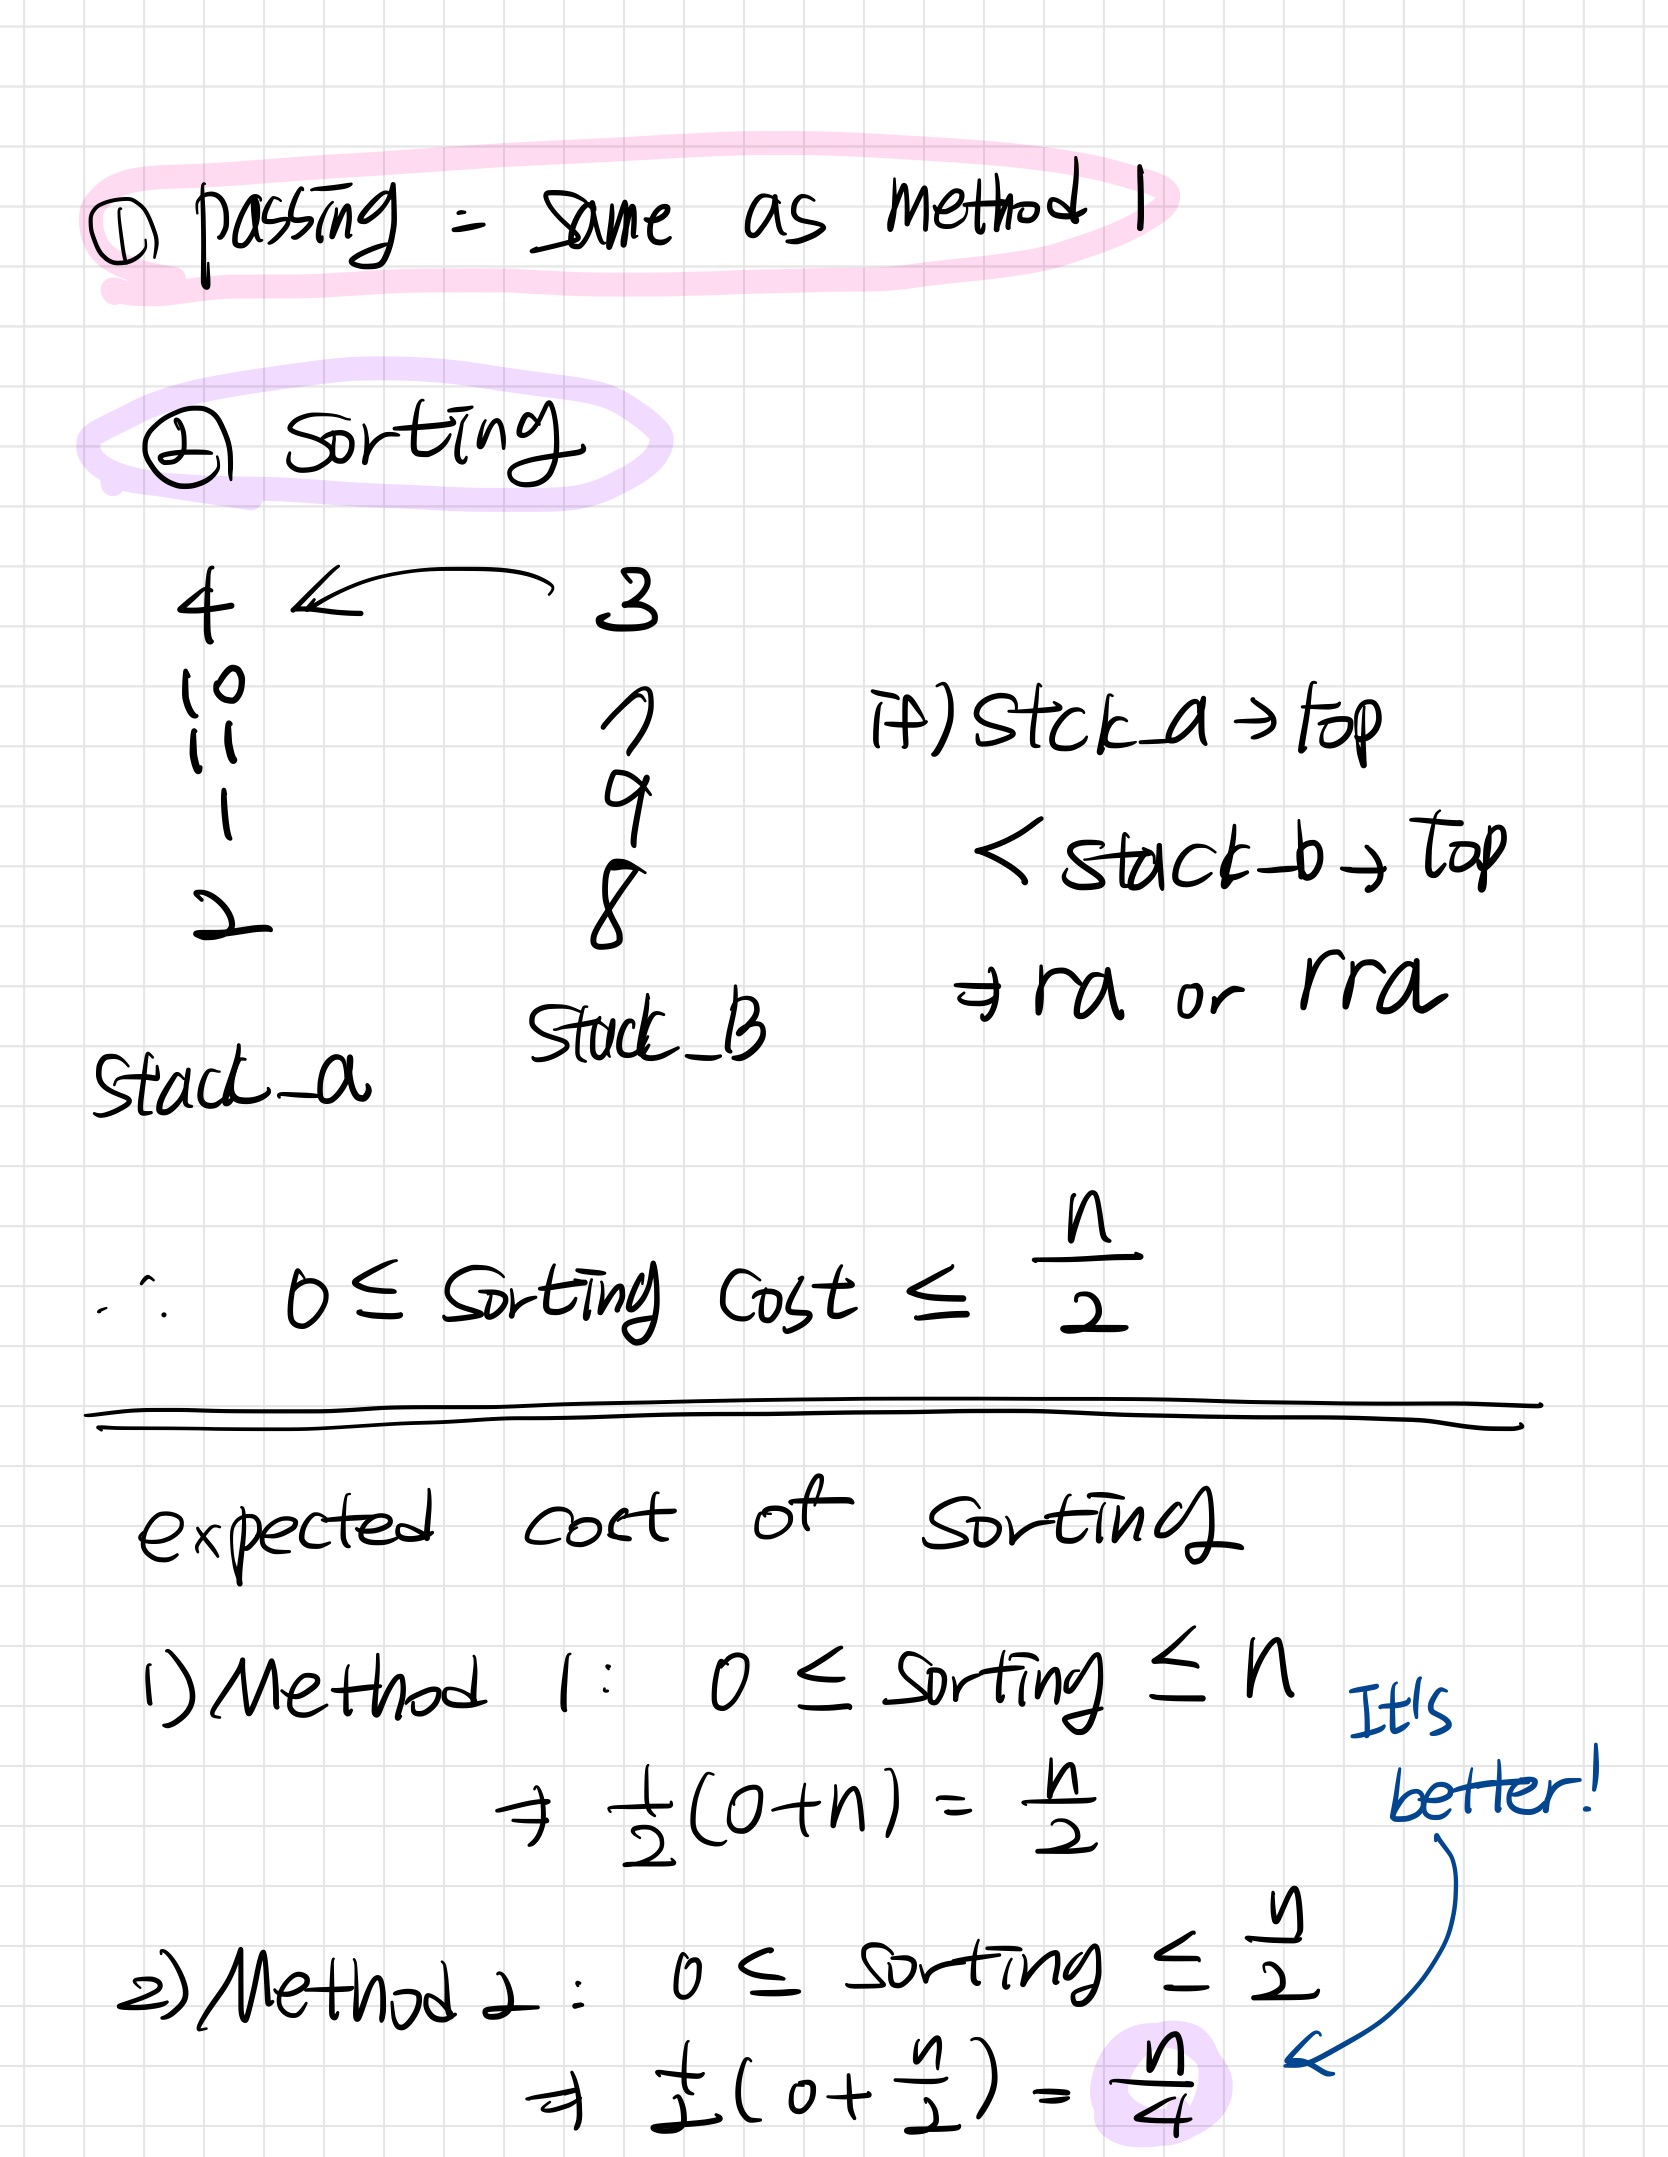 ① passing = same as method 1
② Sorting
4 ← 3
10 7
11 9
1 8
2
Stack_a
Stack_B
if) Stck_a → top
< stack_b → top
⇒ ra or rra
∴ 0 ≤ Sorting Cost ≤ n/2
expected cost of Sorting
1) Method 1: 0 ≤ Sorting ≤ n
⇒ 1/2 (0+n) = n/2
It's
better!
2) Method 2: 0 ≤ Sorting ≤ n/2
⇒ 1/2 (0 + n/2) = n/4